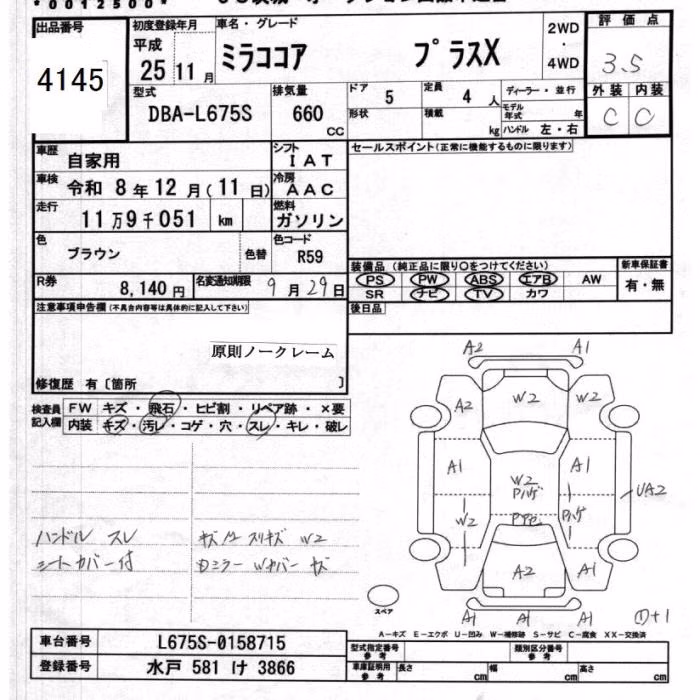 *0012500*
出品番号
4145
初度登録年月
平成
25年11月
車名・グレード
ミラココア プラスX
2WD
・
4WD
評価点
3.5
外装 内装
C C
型式
DBA-L675S
排気量
660
CC
ドア
5
定員
4人
形状
積載
kg
ディーラー・並行
モデル年式 年
ハンドル 左・右
車歴
自家用
シフト
IAT
車検
令和 8年12月(11日)
冷房
AAC
走行
11万9千051 km
燃料
ガソリン
色
ブラウン
色替
色コード
R59
R券
8,140円
名変通知期限
9月29日
セールスポイント(正常に機能するものに限ります)
装備品(純正品に限り〇をつけてください)
新車保証書
PS PW ABS エアB AW
SR ナビ TV カワ
有・無
後日品
注意事項申告欄(不具合内容等は具体的に記入して下さい)
原則ノークレーム
修復歴 有〔箇所 〕
検査員
記入欄
FW キズ・飛石・ヒビ割・リペア跡・×要
内装 キズ・汚レ・コゲ・穴・スレ・キレ・破レ
ハンドル スレ
シートカバー付
W2
ミラー Wカバー キズ
A2 A1
A2 W2 W2
A1 W2 A1
W2 UA2
A1 A2 A1
A1 A1 A1
スペア
①+1
A-キズ E-エクボ U-凹み W-補修跡 S-サビ C-腐食 XX-交換済
車台番号
L675S-0158715
登録番号
水戸 581 け 3866
型式指定番号
参考
類別区分番号
参考
車庫証明用
参考
長さ cm 幅 cm 高さ cm